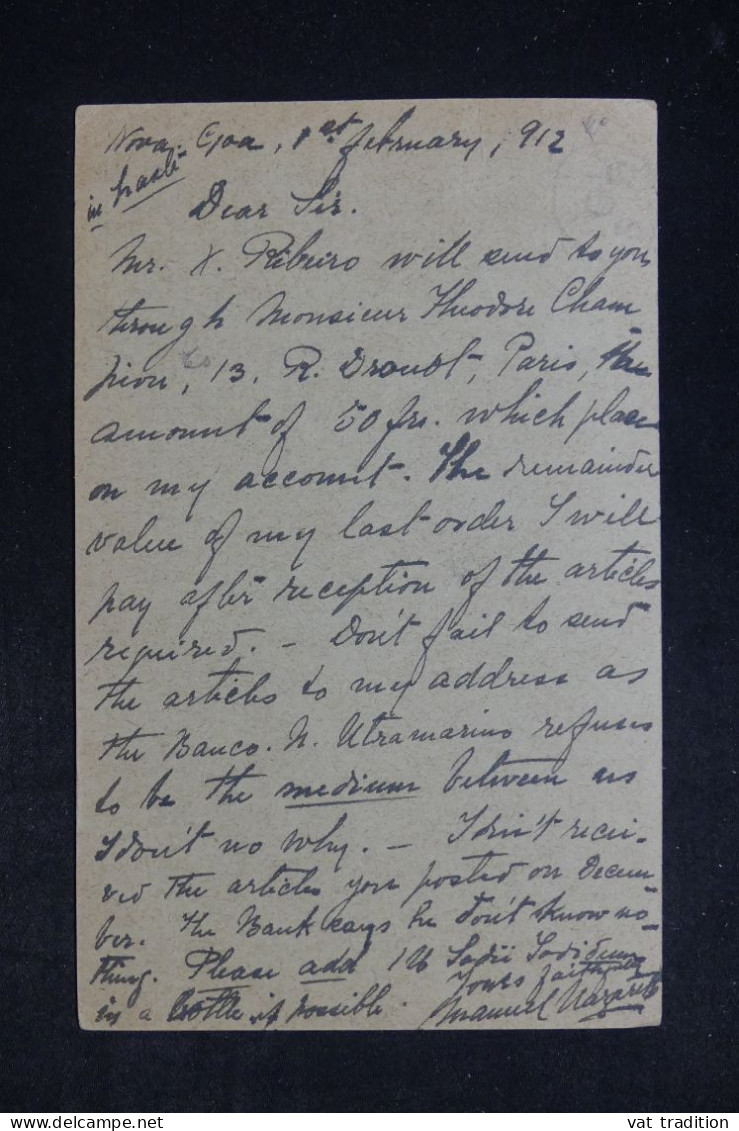 Nova-Goa, 1st february, 912
in haste
Dear Sir.
Mr. X. Ribeiro will send to you
trough Monsieur Theodore Cham
pion, 13, R. Drouot, Paris, the
amount of 50 frs. which place
on my account. The remainder
value of my last order I will
pay after reception of the articles
required. - Don't fail to send
the articles to my address as
the Banco. N. Utramarino refuses
to be the medium between us
I don't no why. - I din't recei-
ved the articles you posted on Decem-
ber. The Bank says he don't know no-
thing. Please add 1 lb Sodii
Yours faithfully
in a bottle if possible. Manuel Nazareth
vat tradition